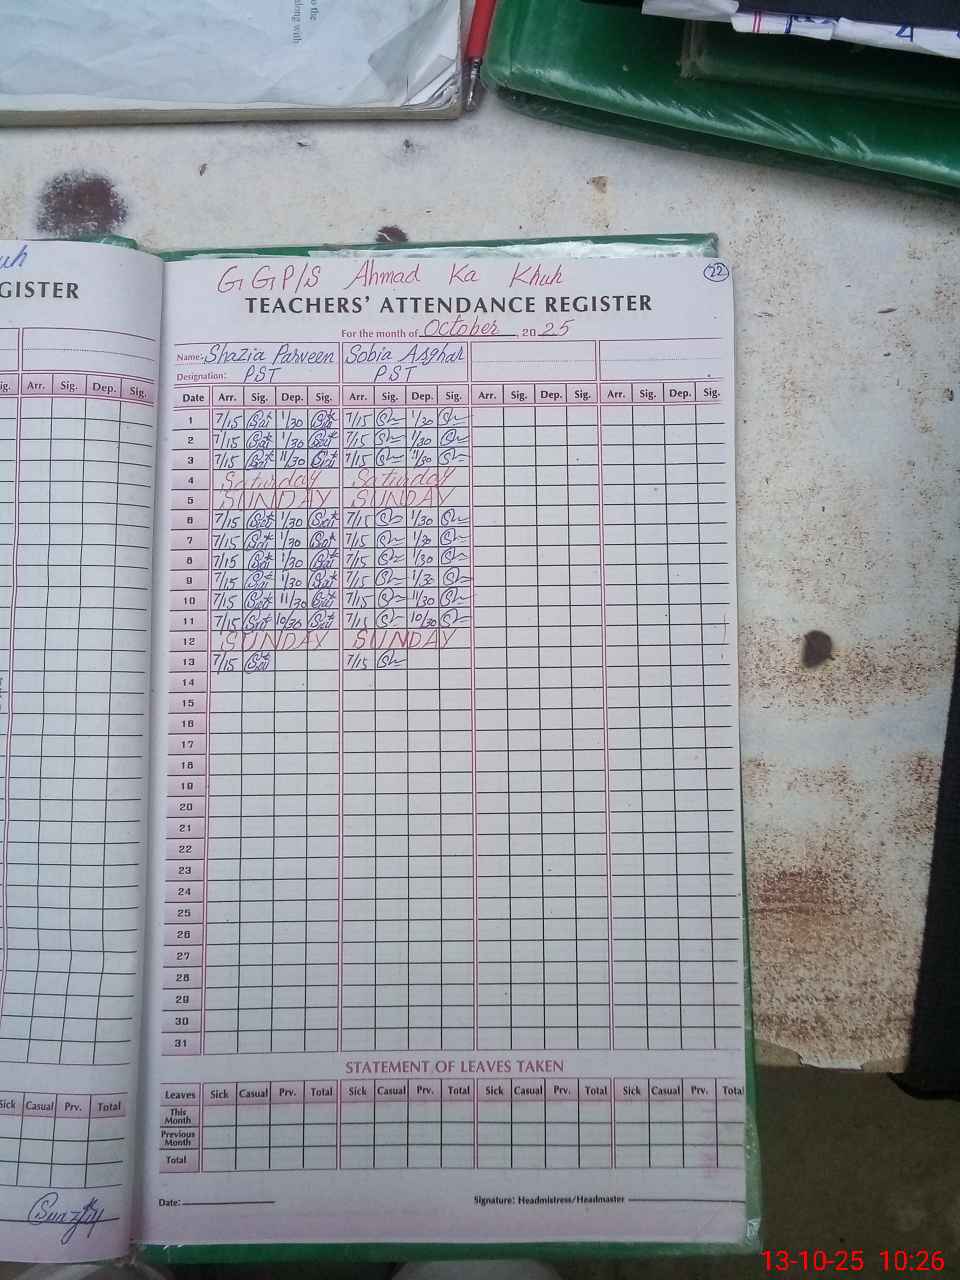 to the
along with
uh
GISTER
ig. Arr. Sig. Dep. Sig.
Sick Casual Prv. Total
22
GGP/S Ahmad Ka Khuh
TEACHERS' ATTENDANCE REGISTER
For the month of October, 2025
Name: Shazia Parveen Sobia Asghar
Designation: PST PST
Date Arr. Sig. Dep. Sig. Arr. Sig. Dep. Sig. Arr. Sig. Dep. Sig. Arr. Sig. Dep. Sig.
1 7/15 1/30 7/15 1/30
2 7/15 1/30 7/15 1/30
3 7/15 11/30 7/15 11/30
4 Saturday Saturday
5 SUNDAY SUNDAY
6 7/15 1/30 7/15 1/30
7 7/15 1/30 7/15 1/30
8 7/15 1/30 7/15 1/30
9 7/15 1/30 7/15 1/30
10 7/15 11/30 7/15 11/30
11 7/15 10/30 7/15 10/30
12 SUNDAY SUNDAY
13 7/15 7/15
14
15
16
17
18
19
20
21
22
23
24
25
26
27
28
29
30
31
STATEMENT OF LEAVES TAKEN
Leaves Sick Casual Prv. Total Sick Casual Prv. Total Sick Casual Prv. Total Sick Casual Prv. Total
This Month
Previous Month
Total
Date: Signature: Headmistress/Headmaster
13-10-25 10:26